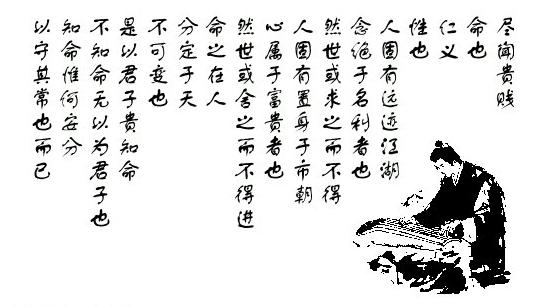 尽闻貴贱
命也
仁义
性也
人固有远迹江湖
念绝于名利者也
然世或求之而不得
人固有置身于市朝
心属于富貴者也
然世或舍之而不得进
命之在人
分定于天
不可变也
是以君子貴知命
不知命无以为君子也
知命惟何安分
以守其常也而已